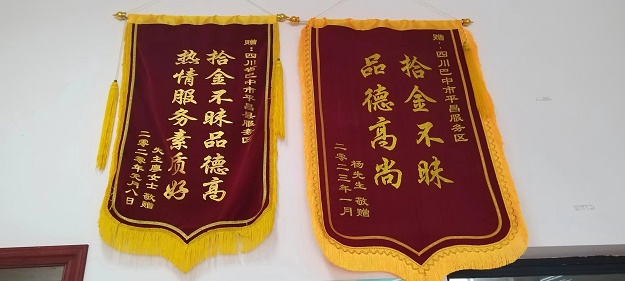 赠：四川省巴中市平昌县服务区
拾金不昧品德高
热情服务素质好
失主廖女士 敬赠
二零二零年元月八日
赠：四川巴中市平昌服务区
拾金不昧
品德高尚
杨先生 敬赠
二零二三年一月